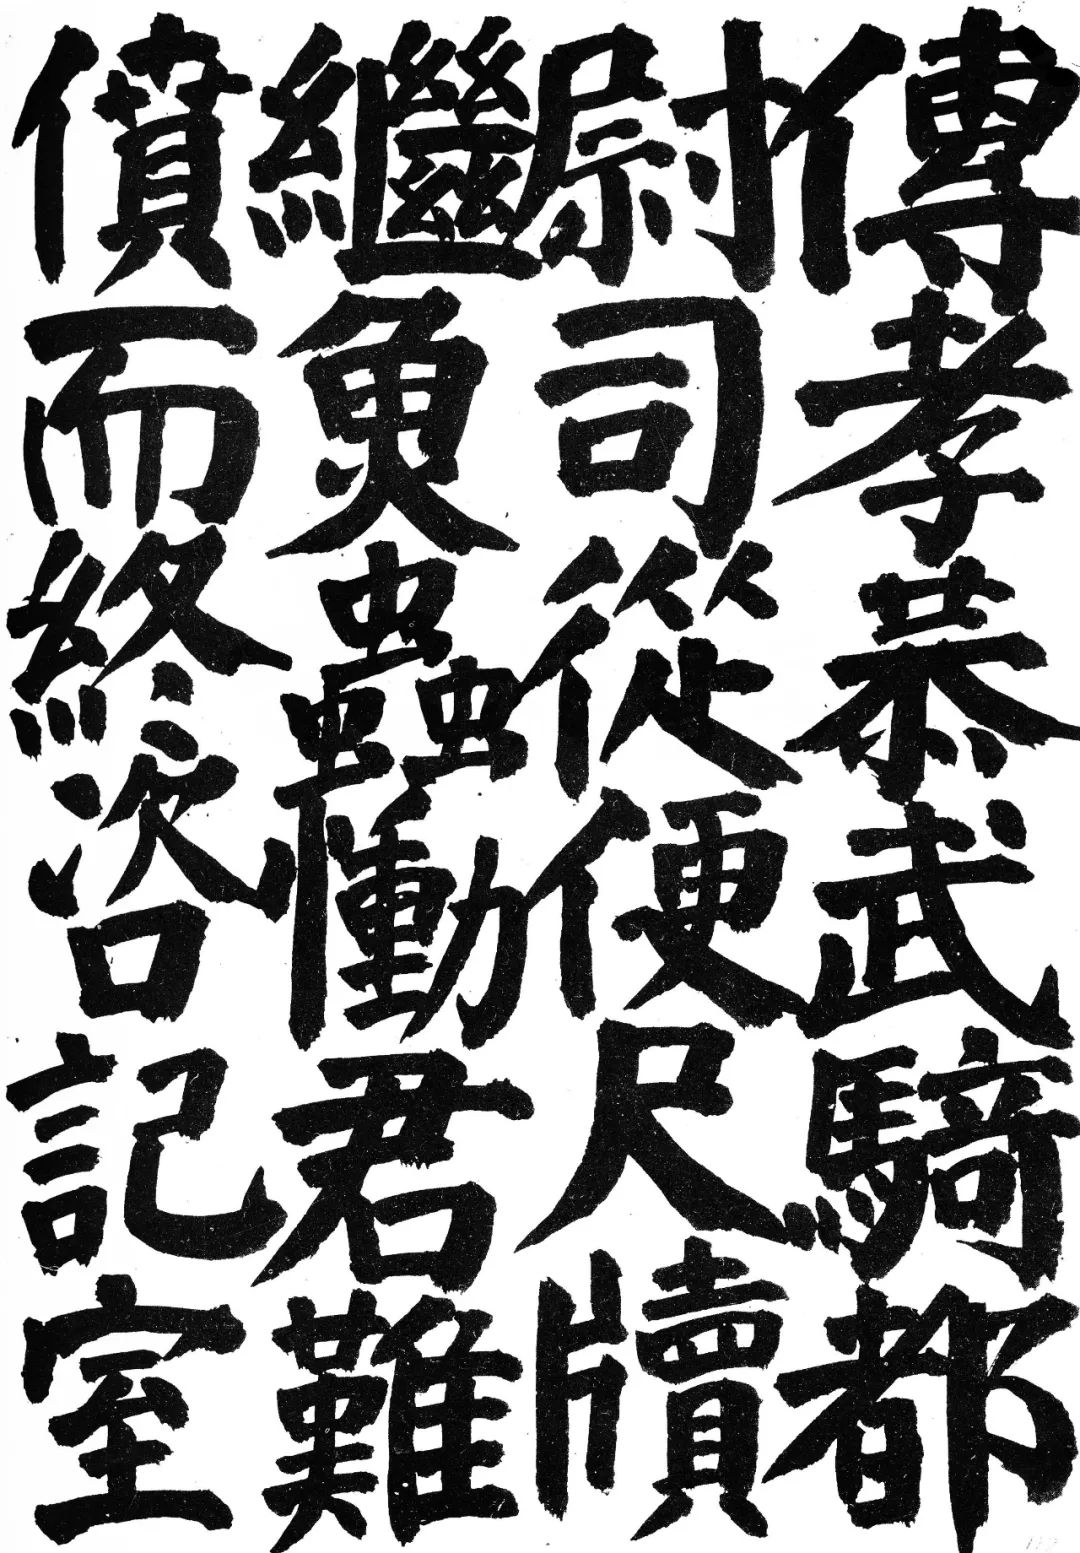 傳孝恭武騎都
尉司從便尺牘
繼魚蟲慟君難
僨而終咨記室